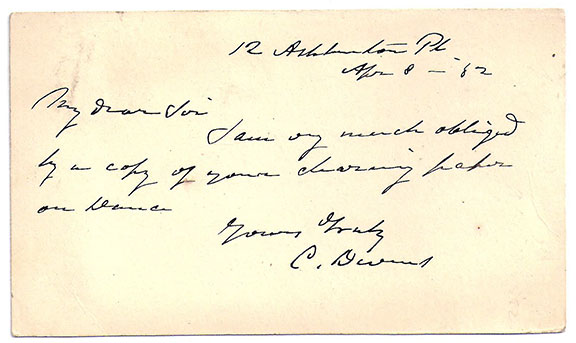 12 Ashburton Pl
Apr 8 – '82
My dear Sir
I am very much obliged
by a copy of your charming paper
on Dance
Yours truly
C. Devens